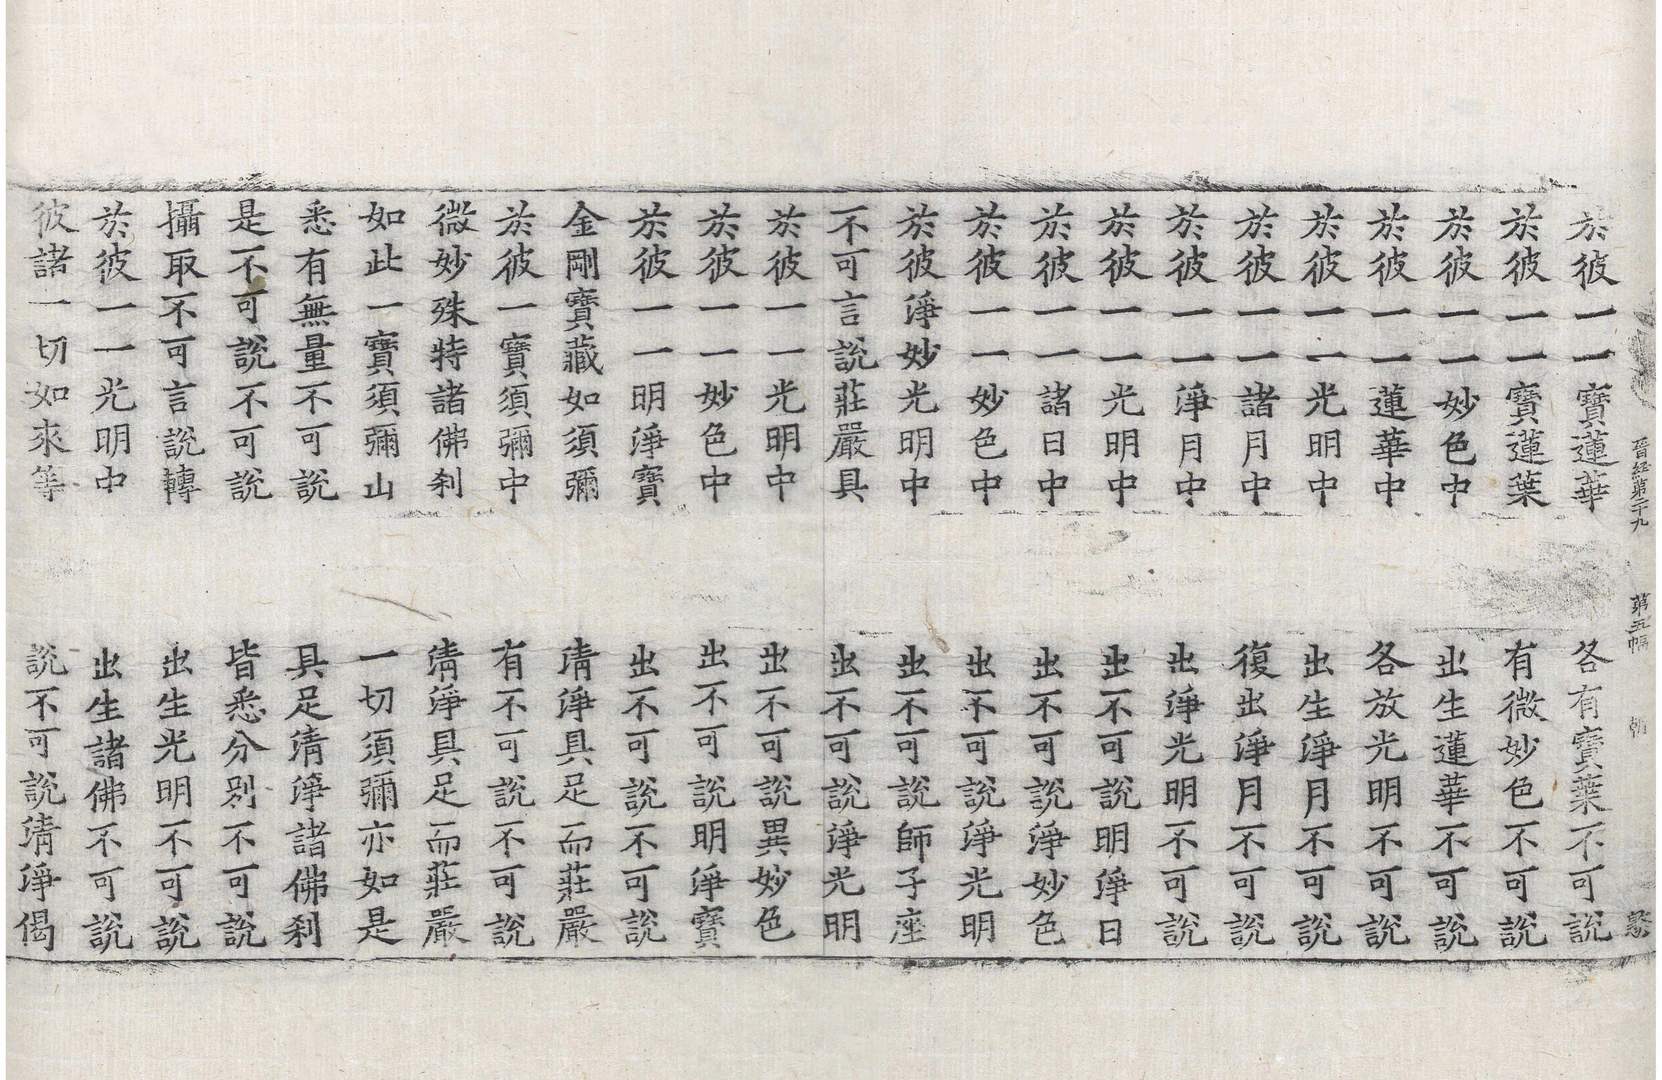 晉經第二十九 第五幅 朝
於彼一一寶蓮華 各有寶葉不可說
於彼一一寶蓮葉 有微妙色不可說
於彼一一妙色中 出生蓮華不可說
於彼一一蓮華中 各放光明不可說
於彼一一光明中 出生淨月不可說
於彼一一諸月中 復出淨月不可說
於彼一一淨月中 出淨光明不可說
於彼一一光明中 出不可說明淨日
於彼一一諸日中 出不可說淨妙色
於彼一一妙色中 出不可說淨光明
於彼淨妙光明中 出不可說師子座
不可言說莊嚴具 出不可說淨光明
於彼一一光明中 出不可說異妙色
於彼一一妙色中 出不可說明淨寶
於彼一一明淨寶 出不可說不可說
金剛寶藏如須彌 清淨具足而莊嚴
於彼一寶須彌中 有不可說不可說
微妙殊特諸佛刹 清淨具足而莊嚴
如此一寶須彌山 一切須彌亦如是
悉有無量不可說 具足清淨諸佛刹
是不可說不可說 皆悉分別不可說
攝取不可言說轉 出生光明不可說
於彼一一光明中 出生諸佛不可說
彼諸一切如來等 說不可說清淨偈